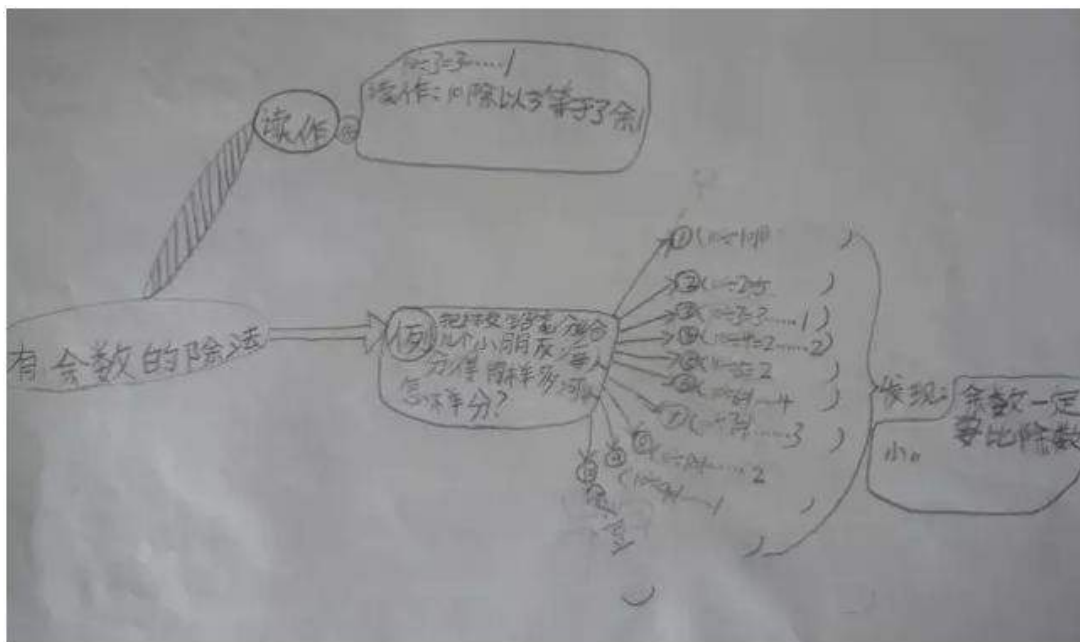 10÷3=3……1
读作:10除以3等于3余1
读作
有余数的除法
例
把10枝铅笔分给
几个小朋友,每人
分得同样多,可以
怎样分?
①(10÷1=10 )
②(10÷2=5 )
③(10÷3=3……1)
④(10÷4=2……2)
⑤(10÷5=2 )
⑥(10÷6=1……4 )
⑦(10÷7=1……3 )
⑧(10÷8=1……2 )
⑨(10÷9=1……1 )
⑩
发现:
余数一定
要比除数
小。